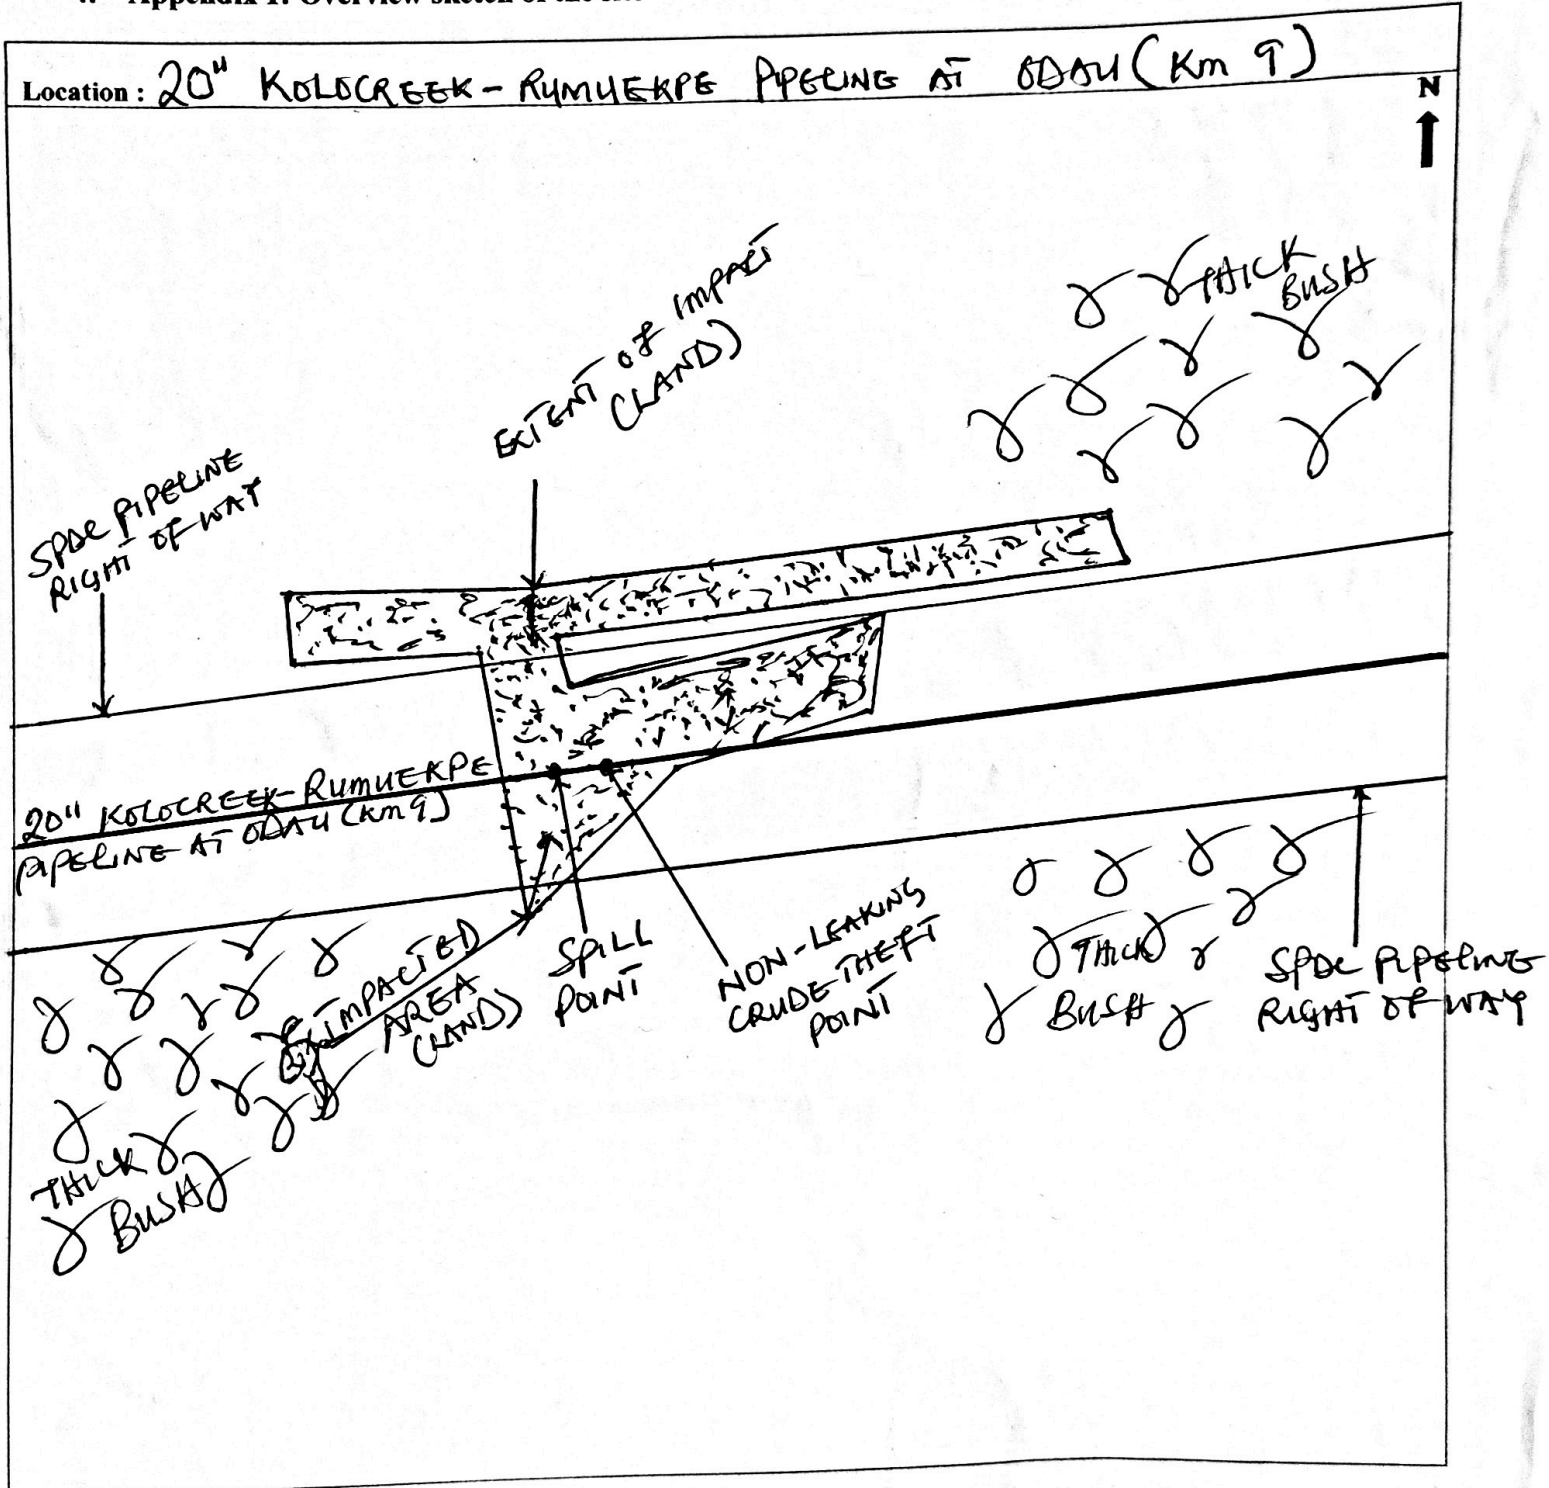 Appendix 1: Overview sketch of the
Location : 20" KOLOCREEK - RUMUEKPE PIPELINE AT ODAU (Km 9)
N
THICK
BUSH
EXTENT OF IMPACT
(LAND)
SPDC PIPELINE
RIGHT OF WAY
20" KOLOCREEK-RUMUEKPE
PIPELINE AT ODAU (Km 9)
IMPACTED
AREA
(LAND)
SPILL
POINT
NON-LEAKING
CRUDE THEFT
POINT
THICK
BUSH
SPDC PIPELINE
RIGHT OF WAY
THICK
BUSH